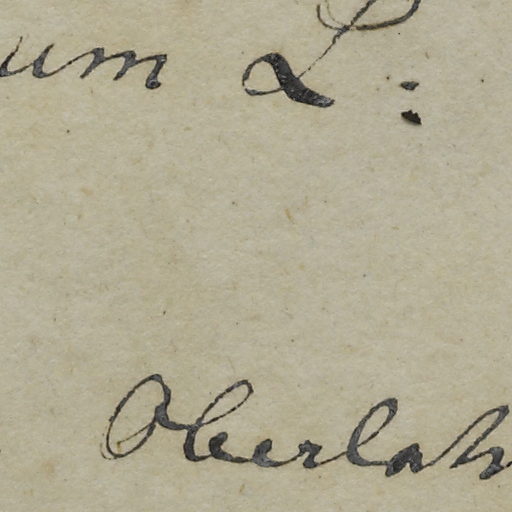 um L :
Oberlah